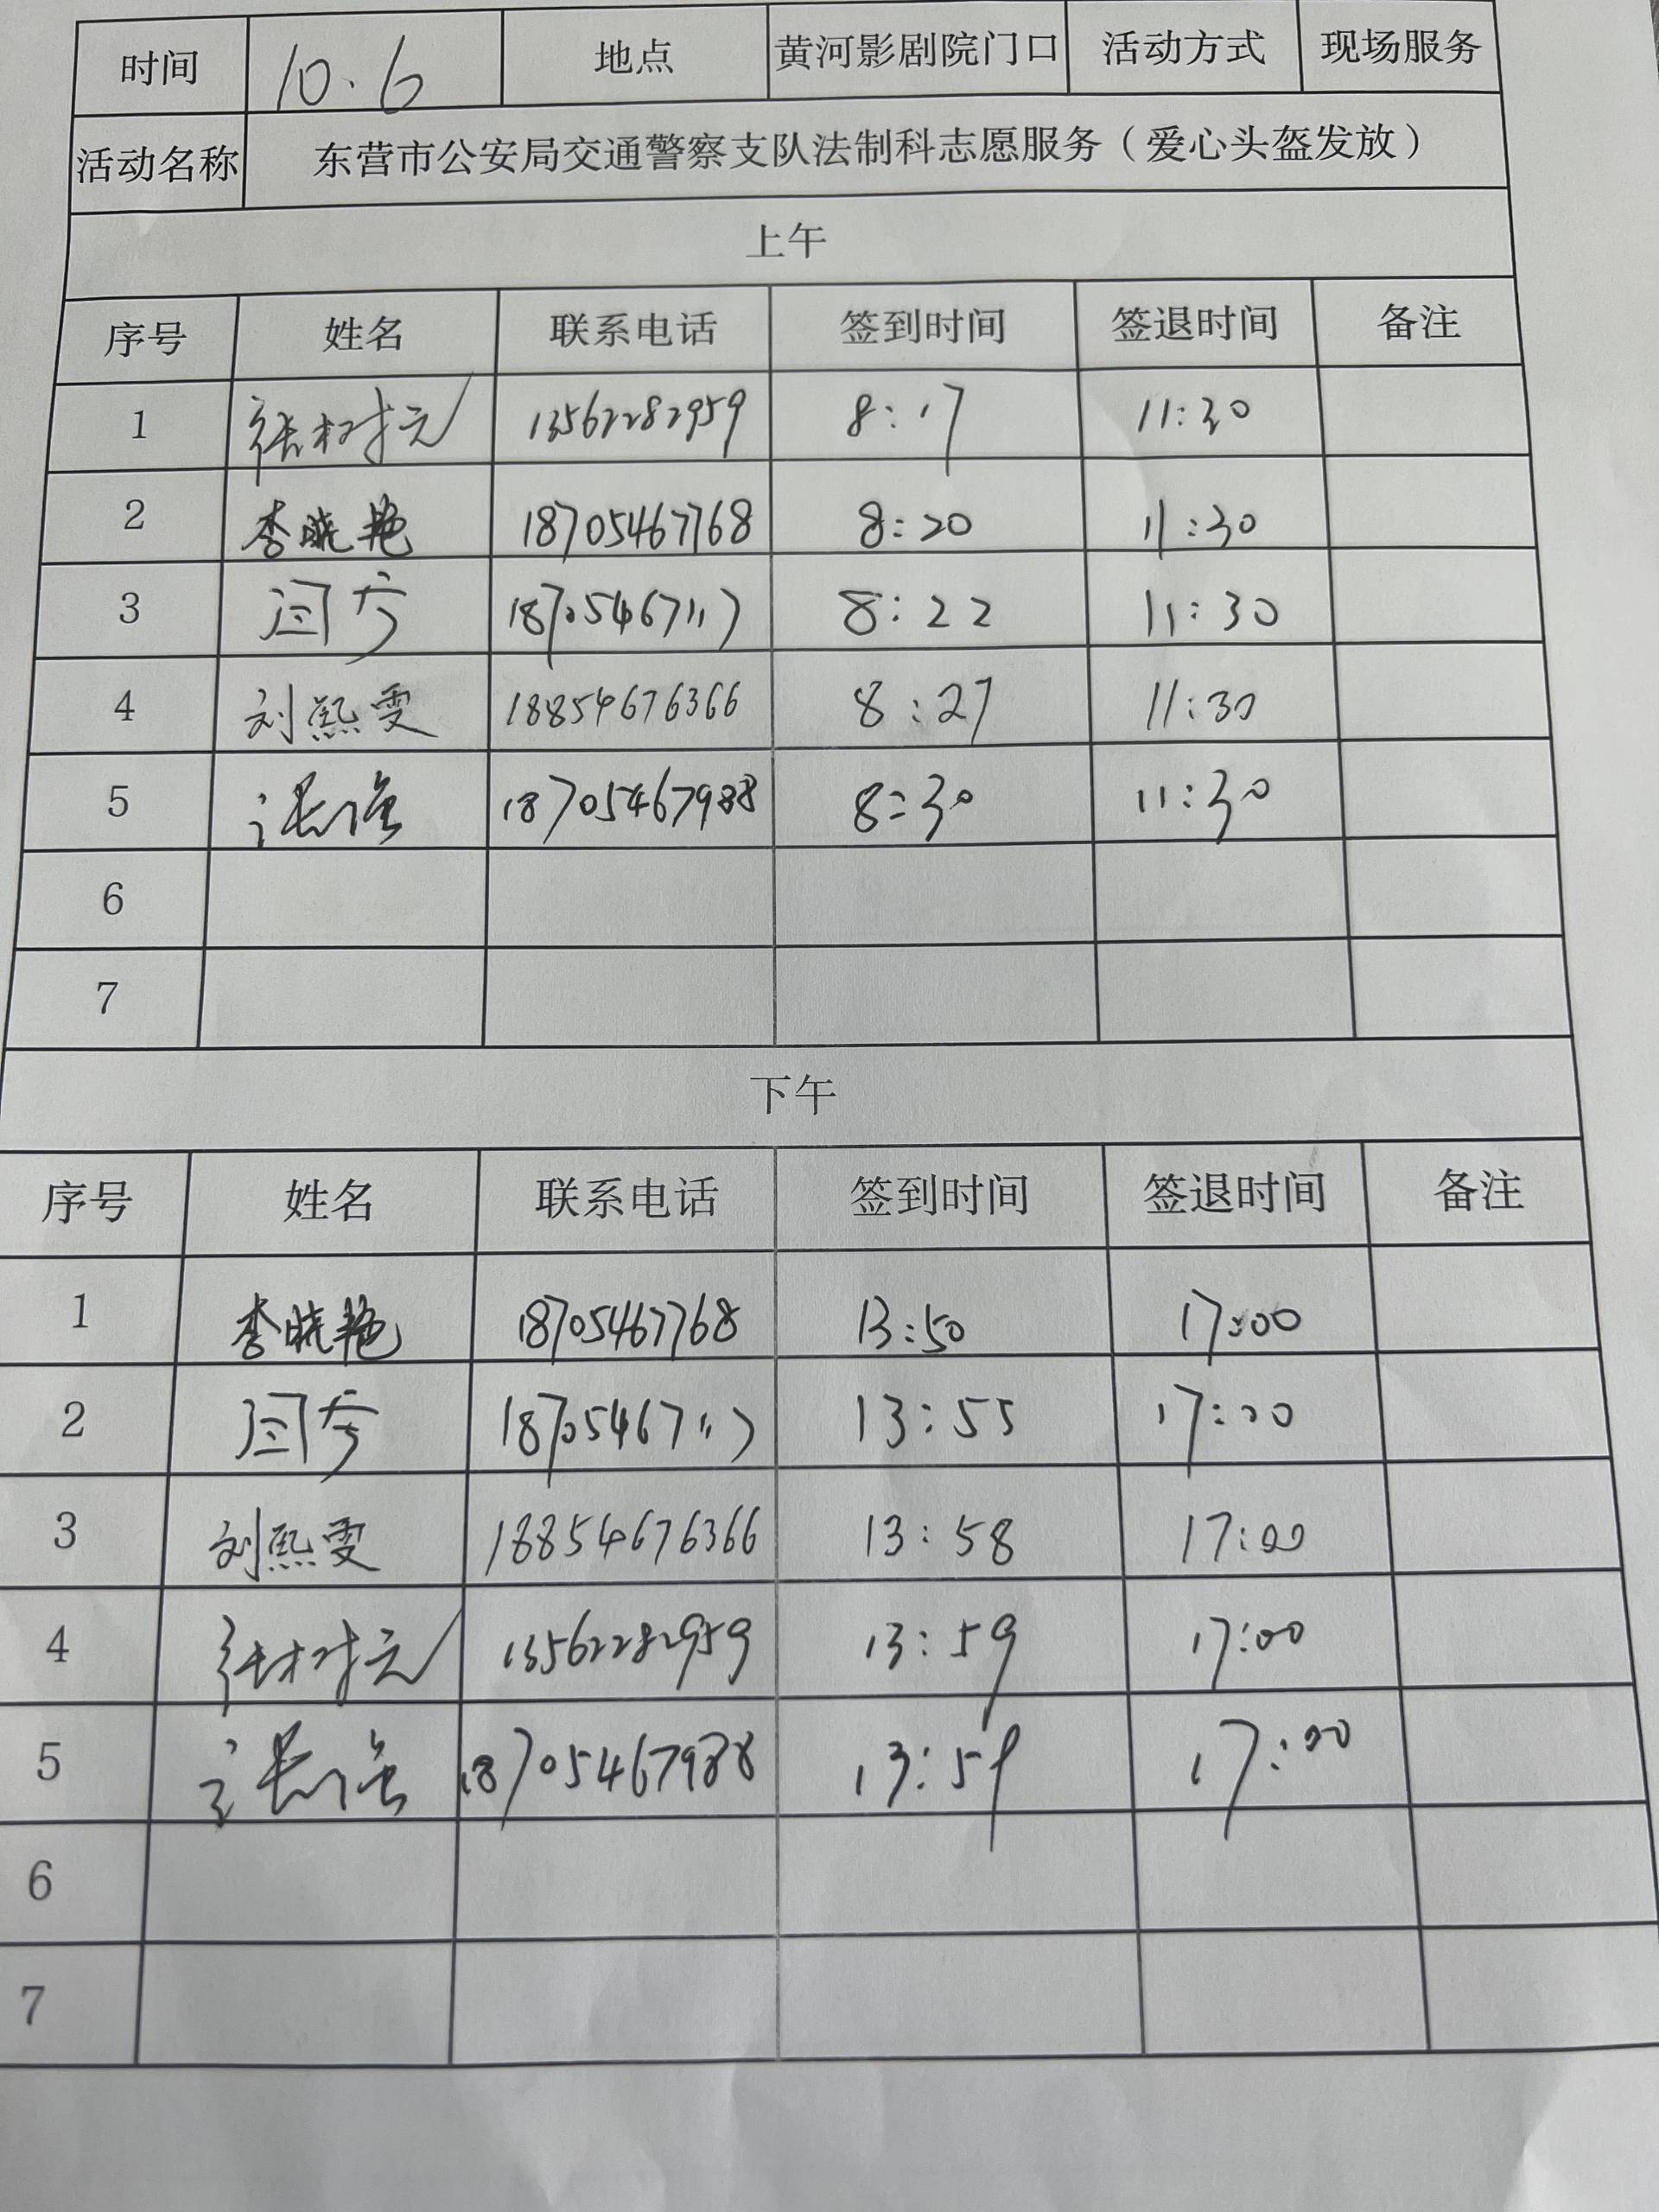 时间 10.6 地点 黄河影剧院门口 活动方式 现场服务
活动名称 东营市公安局交通警察支队法制科志愿服务（爱心头盔发放）
上午
序号 姓名 联系电话 签到时间 签退时间 备注
1 张树元 13562282959 8:17 11:30
2 李晓艳 18705467768 8:20 11:30
3 18705467117 8:22 11:30
4 刘熙雯 18854676366 8:27 11:30
5 18705467988 8:30 11:30
6
7
下午
序号 姓名 联系电话 签到时间 签退时间 备注
1 李晓艳 18705467768 13:50 17:00
2 18705467117 13:55 17:00
3 刘熙雯 18854676366 13:58 17:00
4 张树元 13562282959 13:59 17:00
5 18705467988 13:59 17:00
6
7